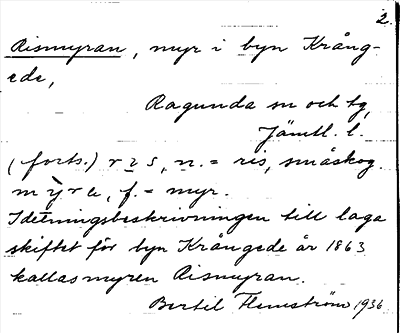 2.
Rismyran, myr i byn Krång-
ede,
Ragunda sn och tg,
Jämtl. l.
(forts.) r ɩ s, n. = ris, småskog.
m ỳ r a, f. = myr.
I delningsbeskrivningen till laga
skiftet för byn Krångede år 1863
kallas myren Rismyran.
Bertil Flemström 1936.